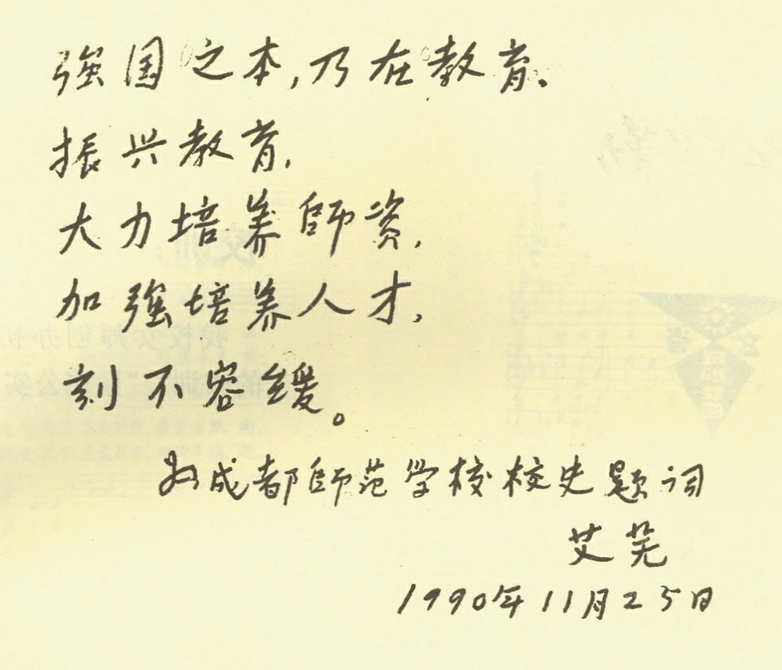 强国之本,乃在教育。
振兴教育,
大力培养师资,
加强培养人才,
刻不容缓。
为成都师范学校校史题词
艾芜
1990年11月25日